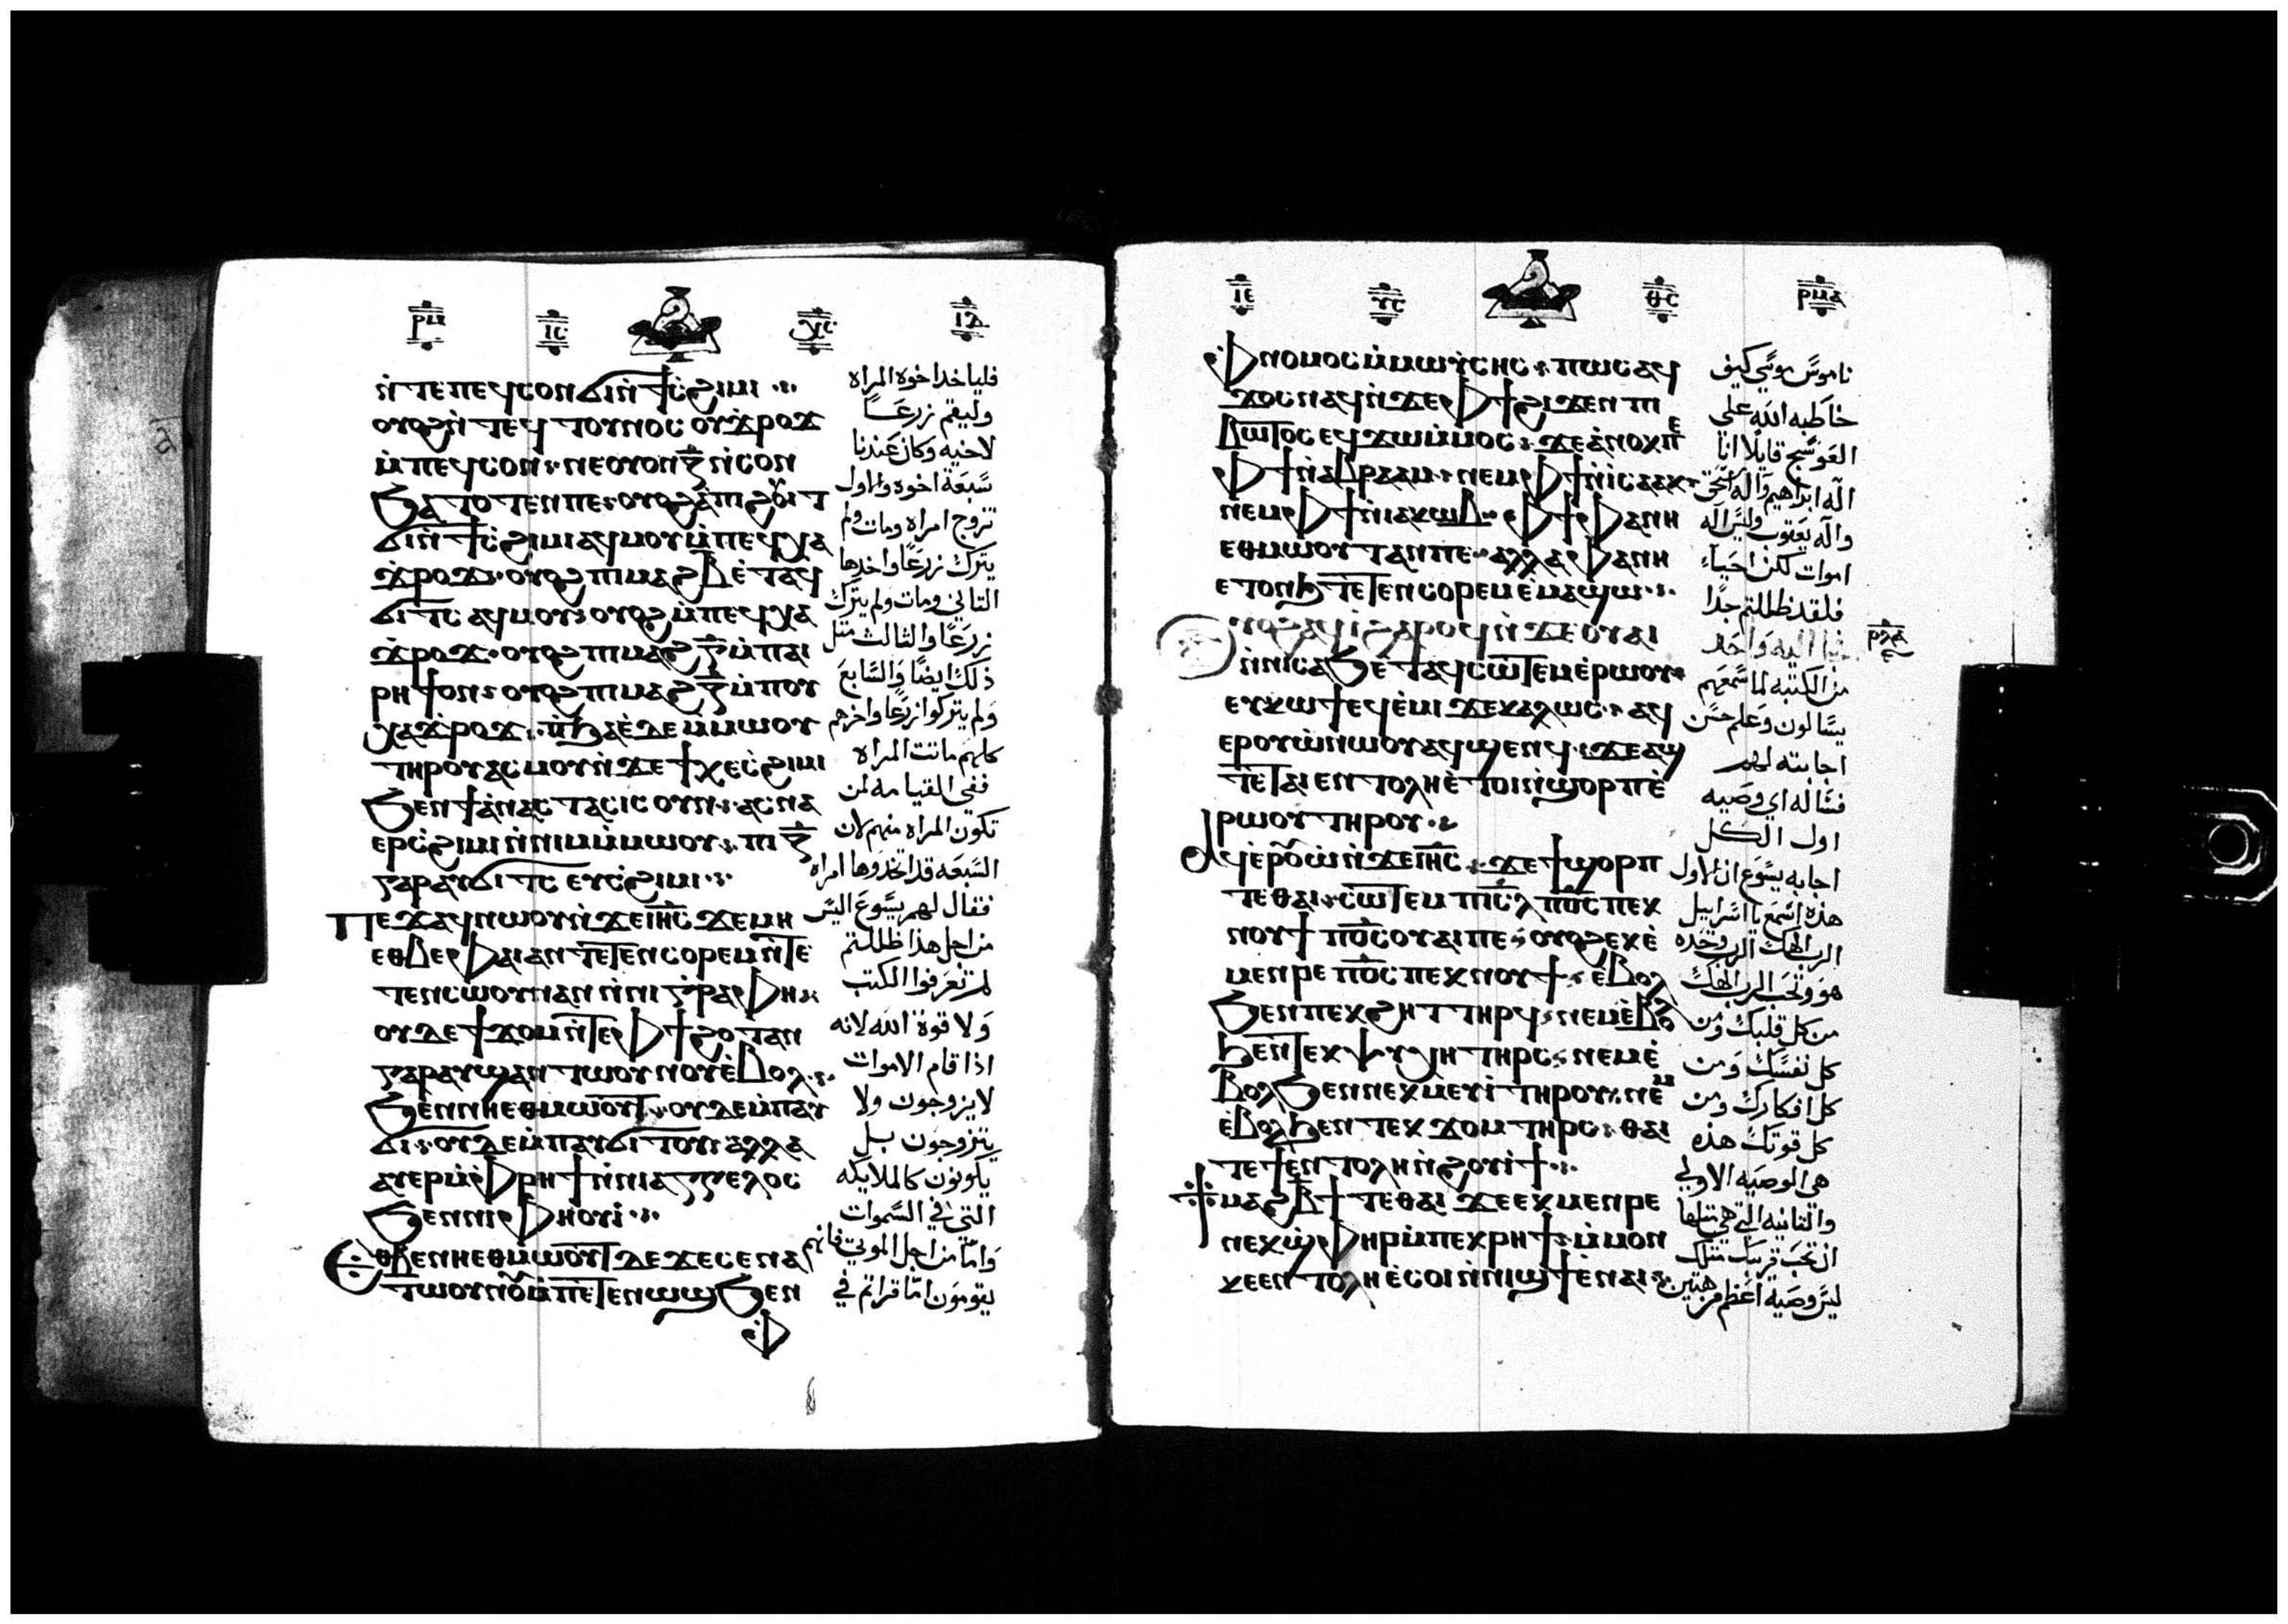 ⲣⲙ ⲓⲥ ⲭⲥ ⲓⲇ
ⲛ̀ⲧⲉⲡⲉϥⲥⲟⲛϭⲓⲛ̀ϯⲥ̀ϩⲓⲙⲓ
ⲟⲩⲟϩⲛ̀ⲧⲉϥⲧⲟⲩⲛⲟⲥⲟⲩϫ̀ⲣⲟϫ
ⲙ̀ⲡⲉϥⲥⲟⲛ ⲛⲉⲟⲩⲟⲛⲍ̅ⲛ̀ⲥⲟⲛ
ϧⲁⲧⲟⲧⲉⲛⲡⲉ ⲟⲩⲟϩⲁ̀ⲡⲓϩⲟⲩⲓⲧ
ϭⲓⲛ̀ϯⲥ̀ϩⲓⲙⲓⲁϥⲙⲟⲩⲙ̀ⲡⲉϥⲭⲁ
ϫ̀ⲣⲟϫ ⲟⲩⲟϩⲡⲓⲙⲁϩⲃ̅ⲉ̀ⲧⲁϥ
ϭⲓⲧⲥ ⲁϥⲙⲟⲩ ⲟⲩⲟϩⲙ̀ⲡⲉϥⲭⲁ
ϫ̀ⲣⲟϫ ⲟⲩⲟϩⲡⲓⲙⲁϩⲅ̅ⲙ̀ⲡⲁⲓ
ⲣⲏϯⲟⲛ ⲟⲩⲟϩⲡⲓⲙⲁϩⲍ̅ⲙ̀ⲡⲟⲩ
ⲭⲁϫ̀ⲣⲟϫ ⲛ̀ϧⲁⲉ̀ⲇⲉⲙ̀ⲙⲱⲟⲩ
ⲧⲏⲣⲟⲩⲁⲥⲙⲟⲩⲛ̀ϫⲉϯⲕⲉⲥ̀ϩⲓⲙⲓ
ϧⲉⲛϯⲁ̀ⲛⲁⲥⲧⲁⲥⲓⲥⲟⲩⲛ ⲁⲥⲛⲁ
ⲉⲣⲥ̀ϩⲓⲙⲓⲛ̀ⲛⲓⲙⲙ̀ⲙⲱⲟⲩ ⲡⲓⲍ̅
ⲅⲁⲣⲁⲩϭⲓⲧⲥ ⲉⲩⲥ̀ϩⲓⲙⲓ
ⲡⲉϫⲁϥⲛⲱⲟⲩⲛ̀ϫⲉⲓⲏ̅ⲥ̅ϫⲉⲙⲏ
ⲉⲑⲃⲉⲫⲁⲓⲁⲛⲧⲉⲧⲉⲛⲥⲟⲣⲉⲙⲛ̀ⲧⲉ
ⲧⲉⲛⲥⲱⲟⲩⲛⲁⲛⲛ̀ⲛⲓⲅ̀ⲣⲁⲫⲏ
ⲟⲩⲇⲉϯϫⲟⲙⲛ̀ⲧⲉⲫϯ ϩⲟⲧⲁⲛ
ⲅⲁⲣⲁⲩϣⲁⲛⲧⲱⲟⲩⲛⲟⲩⲉ̀ⲃⲟⲗ
ϧⲉⲛⲛⲏⲉⲑⲙⲱⲟⲩⲧ ⲟⲩⲇⲉⲙ̀ⲡⲁⲩ
ϭⲓ ⲟⲩⲇⲉⲙ̀ⲡⲁⲩϭⲓⲧⲟⲩ ⲁⲗⲗⲁ
ⲁⲩⲉⲣⲙ̀ⲫⲣⲏϯⲛ̀ⲛⲓⲁⲅⲅⲉⲗⲟⲥ
ϧⲉⲛⲛⲓⲫⲏⲟⲩⲓ̀
ⲉⲑⲃⲉⲛⲏⲉⲑⲙⲱⲟⲩⲧⲇⲉϫⲉⲥⲉⲛⲁ
ⲧⲱⲟⲩⲛⲟⲩⲙ̀ⲡⲉⲧⲉⲛⲱϣϧⲉⲛ
ⲫ
فلياخد اخوه المراه
وليقم زرعًا
لاخيه وكان عندنا
سبعة اخوه والاول
تزوج امراه ومات ولم
يترك زرعًا واخدها
التاني ومات ولم يترك
زرعًا والثالث مثل
ذلك ايضًا والسابع
ولم يتركوا زرعًا واخرهم
كلهم ماتت المراه
ففي القيامه لمن
تكون المراه منهم لان
السبعه قد اتخذوها امراه
فقال لهم يسوع اليس
من اجل هذا ظللتم
لم تعرفوا الكتب
ولا قوة الله لانه
اذا قام الاموات
لا يزوجون ولا
يتزوجون بل
يكونون كالملايكه
التي في السموات
واما من اجل الموتي فانهم
يقومون اما قراتم في
ⲓⲉ ⲩⲥ ⲑⲥ ⲣⲙⲁ
ⲫⲛⲟⲙⲟⲥⲙ̀ⲙⲱⲩⲥⲏⲥ ⲡⲱⲥⲁϥ
ϫⲟⲥⲛⲁϥⲛ̀ϫⲉⲫϯϩⲓϫⲉⲛⲡⲓ
ⲃⲁⲧⲟⲥⲉϥϫⲱⲙ̀ⲙⲟⲥ ϫⲉⲁ̀ⲛⲟⲕⲡⲉ
ⲫϯⲛ̀ⲁⲃⲣⲁⲁⲙ ⲛⲉⲙⲫϯⲛ̀ⲓⲥⲁⲁⲕ
ⲛⲉⲙⲫϯⲛ̀ⲓⲁⲕⲱⲃ ⲫϯⲫⲁⲛⲏ
ⲉⲑⲙⲱⲟⲩⲧⲁⲛⲡⲉ ⲁⲗⲗⲁⲫⲁⲛⲏ
ⲉⲧⲟⲛϧⲧⲉⲧⲉⲛⲥⲟⲣⲉⲙⲉ̀ⲙⲁϣⲱ
ⲟⲩⲟϩⲁϥⲓ̀ϩⲁⲣⲟϥⲛ̀ϫⲉⲟⲩⲁⲓ
ⲛ̀ⲛⲓⲥⲁϧⲉ̀ⲧⲁϥⲥⲱⲧⲉⲙⲉ̀ⲣⲱⲟⲩ
ⲉⲩⲕⲱϯⲉϥⲉ̀ⲙⲓϫⲉⲕⲁⲗⲱⲥ ⲁϥ
ⲉⲣⲟⲩⲱ̀ⲛⲱⲟⲩⲁϥϣⲉⲛϥ ϫⲉⲁϣ
ⲧⲉⲧⲁⲓⲉⲛⲧⲟⲗⲏⲉ̀ⲧⲟⲓⲛ̀ϣⲟⲣⲡⲉ̀
ⲣⲱⲟⲩⲧⲏⲣⲟⲩ
ⲁϥⲉⲣⲟⲩⲱ̀ⲛ̀ϫⲉⲓⲏ̅ⲥ̅ ϫⲉϯϣⲟⲣⲡ
ⲧⲉⲑⲁⲓ ⲥⲱⲧⲉⲙⲡⲓⲥ̅ⲗ̅ⲡⲟ̅ⲥ̅ⲡⲉⲕ
ⲛⲟⲩϯⲡⲟ̅ⲥ̅ⲟⲩⲁⲓⲡⲉ ⲟⲩⲟϩⲉⲕⲉ̀
ⲙⲉⲛⲣⲉⲡⲟ̅ⲥ̅ⲡⲉⲕⲛⲟⲩϯ ⲉ̀ⲃⲟⲗ
ϧⲉⲛⲡⲉⲕϩⲏⲧⲧⲏⲣϥ ⲛⲉⲙⲉ̀ⲃⲟⲗ
ϧⲉⲛⲧⲉⲕⲯⲩⲭⲏⲧⲏⲣⲥ ⲛⲉⲙⲉ̀
ⲃⲟⲗϧⲉⲛⲛⲉⲕⲙⲉⲩⲓ̀ⲧⲏⲣⲟⲩ ⲛⲉⲙ
ⲉ̀ⲃⲟⲗϧⲉⲛⲧⲉⲕϫⲟⲙⲧⲏⲣⲥ ⲑⲁⲓ
ⲧⲉϯⲉⲛⲧⲟⲗⲏⲛ̀ϩⲟⲩⲓϯ
ϯⲙⲁϩⲃ̅ϯⲧⲉⲑⲁⲓ ϫⲉⲉⲕⲙⲉⲛⲣⲉ
ⲡⲉⲕϣⲫⲏⲣⲙ̀ⲡⲉⲕⲣⲏϯ ⲙ̀ⲙⲟⲛ
ⲕⲉⲉⲛⲧⲟⲗⲏⲉⲥⲟⲓⲛ̀ⲛⲓϣϯⲉⲛⲁⲓ
ناموس موسي كيف
خاطبه الله علي
العوسج قايلا انا
اله ابراهيم واله اسحق
واله يعقوب وليس اله
اموات لكن احياء
فلقد ظللتم جدًا
واحد
من الكتبه لما سمعهم
يسالون وعلم حسن
اجابته لهم
فساله اي وصيه
اول الكل
اجابه يسوع ان الاول
هذه اسمع يا اسراييل
الرب الهك الرب وحده
هو وتحب الرب الهك
من كل قلبك ومن
كل نفسك ومن
كل افكارك ومن
كل قوتك هذه
هي الوصيه الاولي
والتانيه التي هي مثلها
ان تحب قريبك مثلك
ليس وصية اعظم من هتين